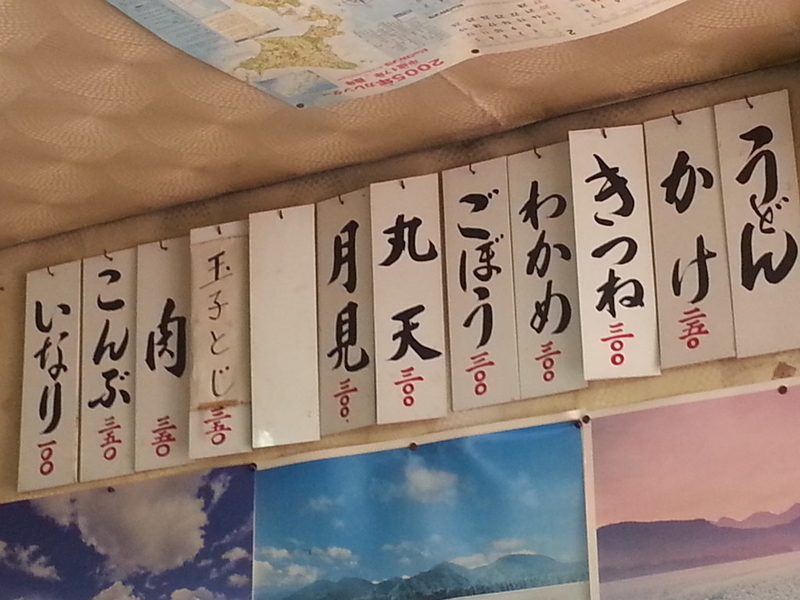 2005年カレンダー
うどん
かけ 二五〇
きつね 三〇〇
わかめ 三〇〇
ごぼう 三〇〇
丸天 三〇〇
月見 三〇〇
玉子とじ 三五〇
肉 三五〇
こんぶ 三五〇
いなり 一〇〇